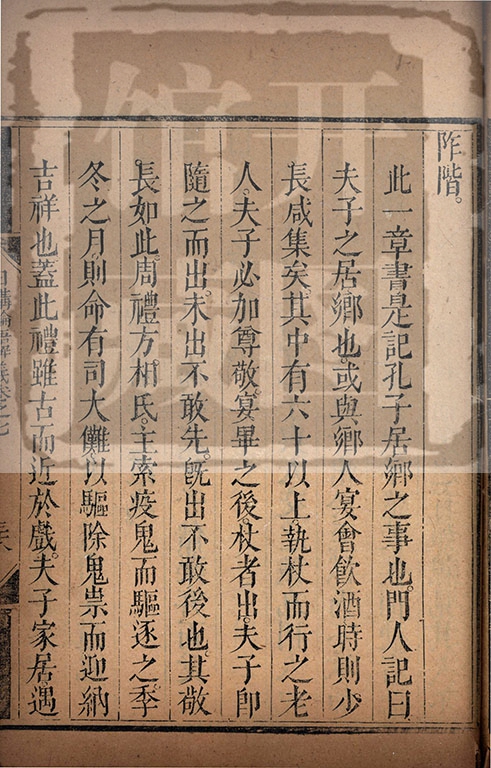 阼階。
此一章書是記孔子居鄉之事也。門人記曰
夫子之居鄉也。或與鄉人宴會飲酒時則少
長咸集矣。其中有六十以上。執杖而行之老
人。夫子必加尊敬。宴畢之後。杖者出。夫子卽
隨之而出。未出不敢先。旣出不敢後也。其敬
長如此。周禮方相氏。主索疫鬼而驅逐之。季
冬之月。則命有司大儺。以驅除鬼祟而迎納
吉祥也。蓋此禮雖古而近於戲。夫子家居遇
日講論語解義卷之七